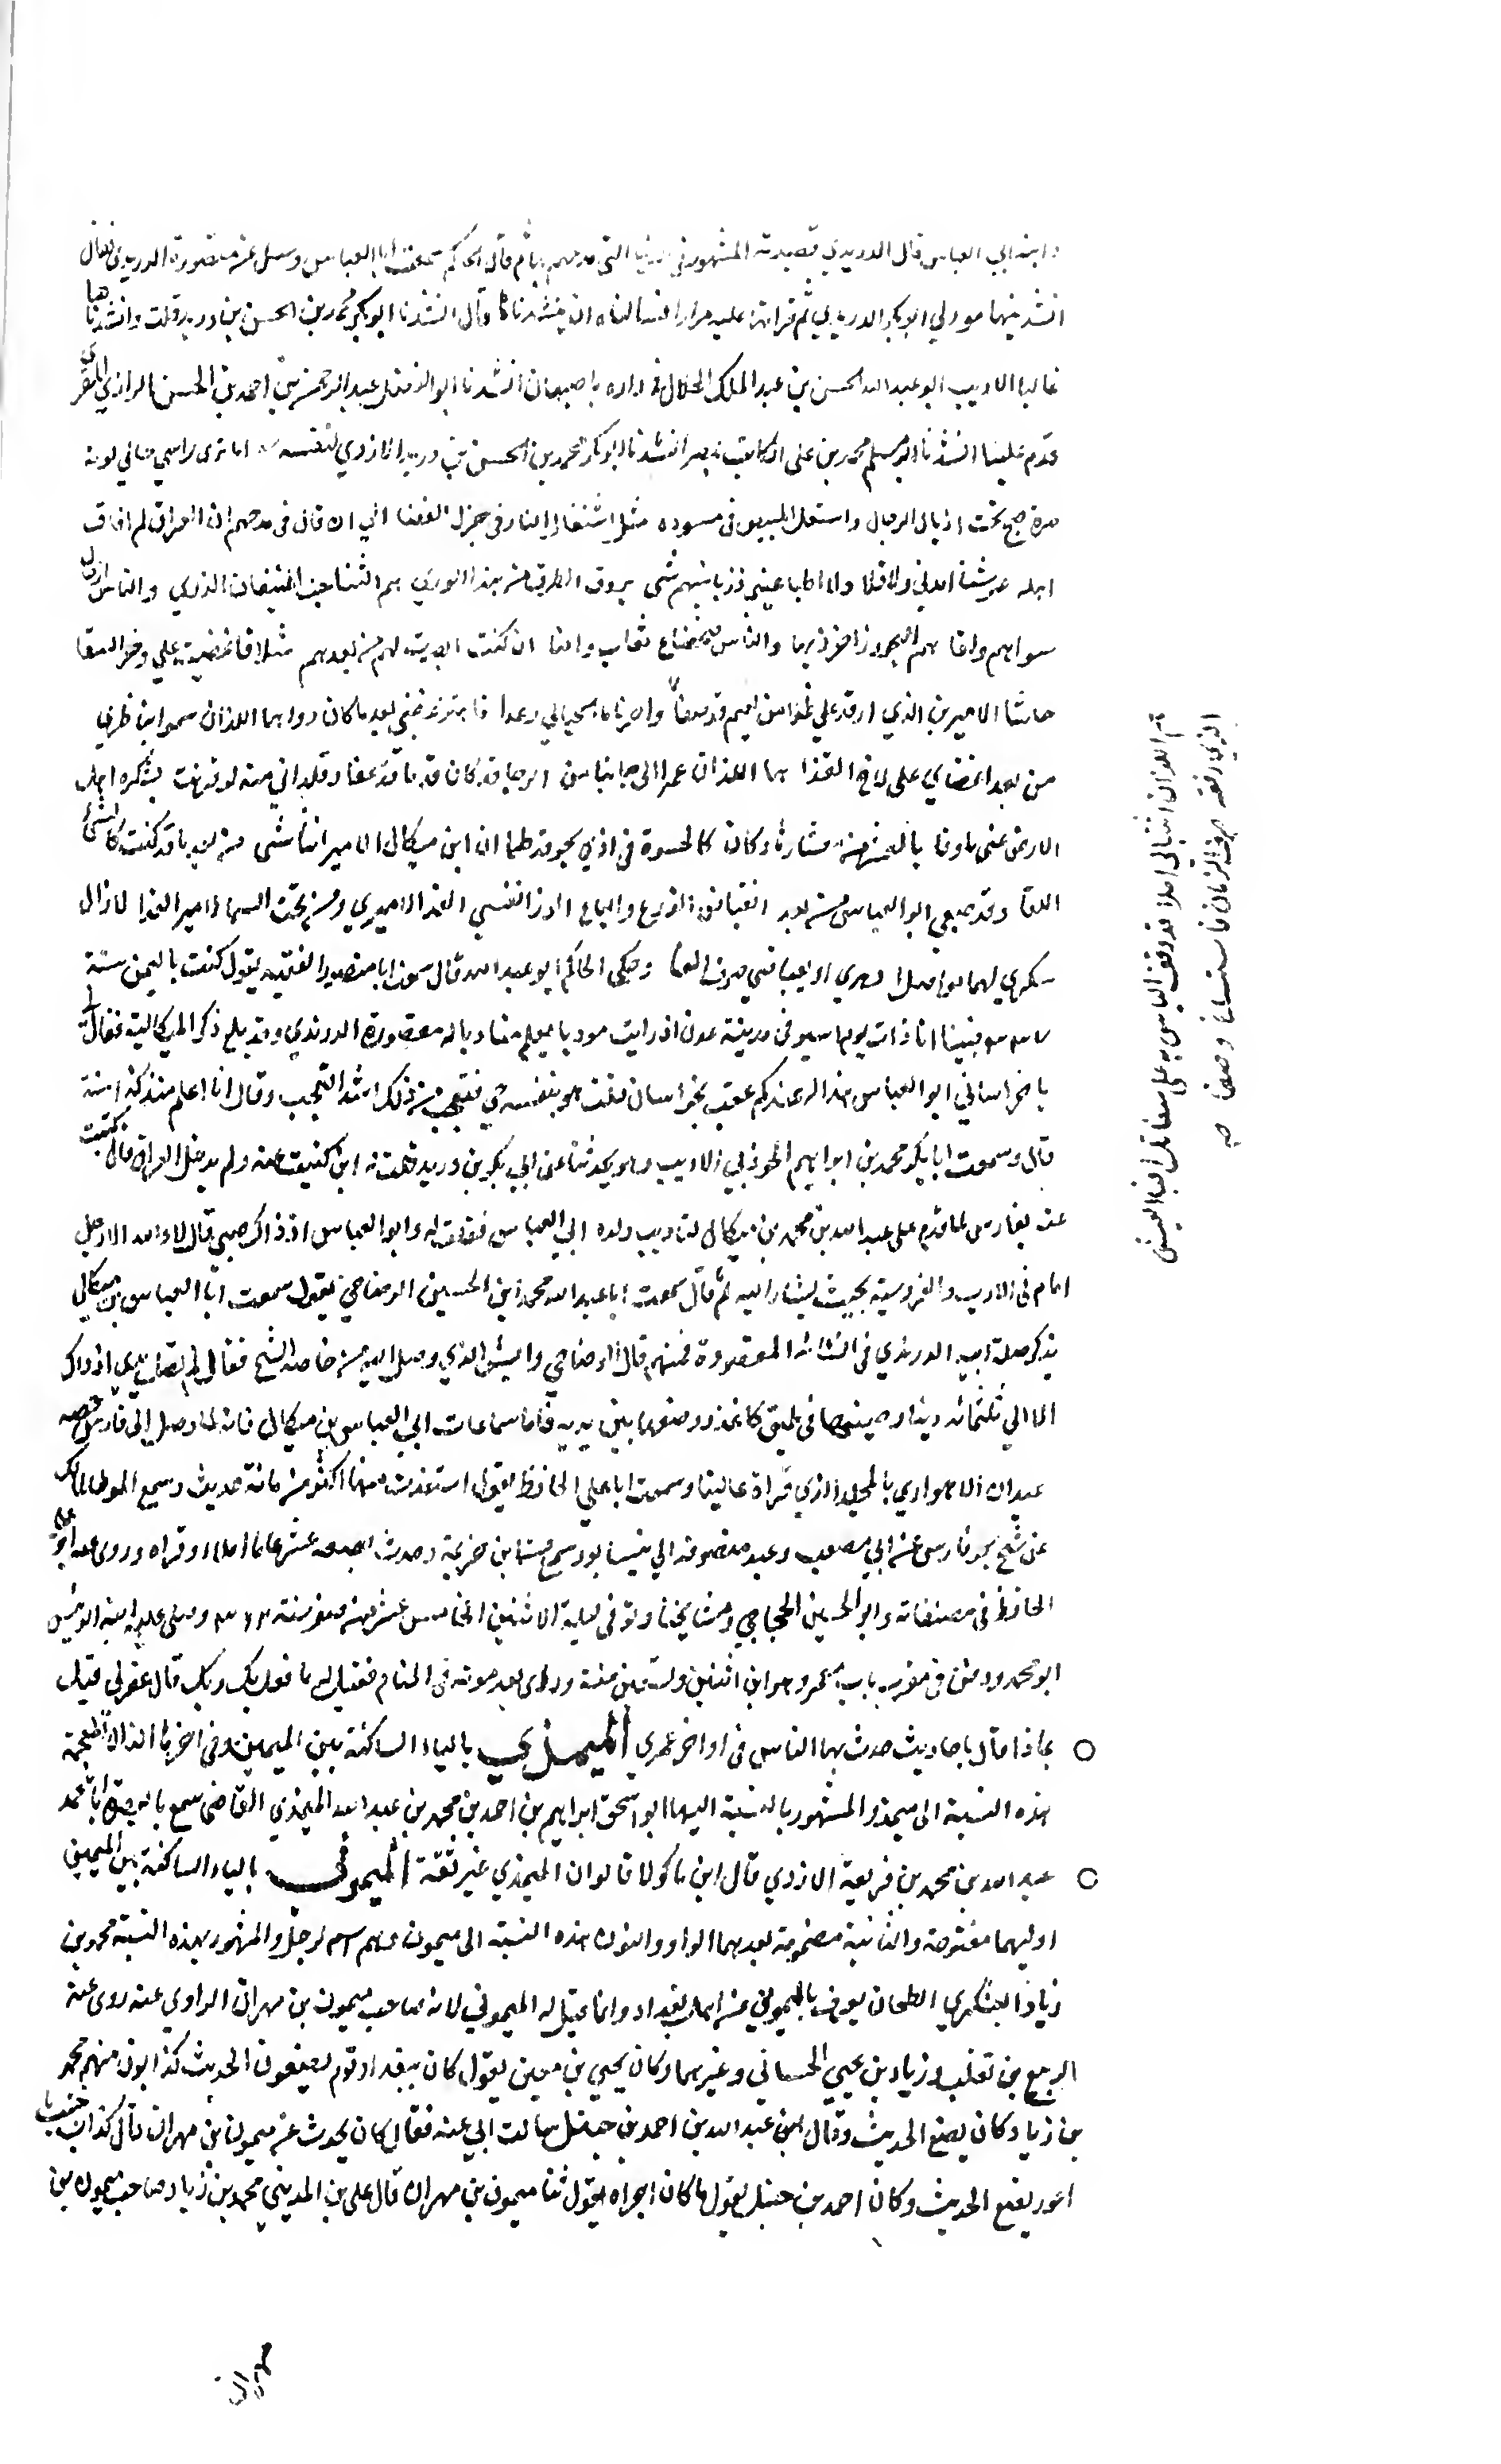 وابنه ابي العباس قال الدريدي قصيدته المشهورة في الدنيا التي مدحهم بها ثم قال الحاكم سمعت ابا العباس وسئل عن مقصورة الدريدي فقال
انشدنيها مودبي ابو بكر الدريدي ثم قراتها عليه مرارا فسالناه ان ينشدناها قال انشدنا ابو بكر محمد بن الحسن بن دريد قلت وانشدناها
غالبا الاديب ابو عبد الله الحسن بن عبد الملك الخلال في داره باصبهان انشدنا ابو الفضل عبد الرحمن بن احمد بن الحسن الرازي المقري
قدم علينا انشدنا ابو مسلم محمد بن علي الكاتب بمصر انشدنا ابو بكر محمد بن الحسن بن دريد الازدي لنفسه اما تري راسي حاكي لونه
طرة صبح تحت اذيال الدجال واشتعل المبيض في مسوده مثل اشتعال النار في جزل الغضا الي ان قال في مدحهم ان العراق لم افارق
اهله عن شنا اصدني ولا قلا ولا اطبا عيني مذ فارقتهم شي يروق الطرف من هذا الوري هم الشناخيب المنيفات الذري والناس ادحال
سواهم وهوا هم البحور زاخر اذيها والناس ضحضاح ثعاب واضا ان كنت ابصرت لهم من بعدهم مثلا فاغضيت علي وخز السفا
حاشا الاميرين الذي اوفدا علي ظلا من نعيم قد ضفا
من بعد اغضاي علي لذع القذا هما اللذان عمرا لي جانبا من الرجا قد كان قدما قد عفا وقلداني منة لو قرنت بشكر اهل
الارض عني ما وفا بالعشر من معشارها وكان كالحسوة في اذي بحر قد طما ان ابن ميكال الامير انتاشني من بعد ما قد كنت كالشي
اللقا ومد ضبعي ابو العباس من بعد انقباض الذرع والباع الوزا نفسي الفدا لاميري ومن تحت السما لاميري الفدا لا زال
شكري لهما مواصلا لدهري او يعتاقني صرف الفنا وحكي الحاكم ابو عبد الله قال سمعت ابا منصور الفقيه يقول كنت باليمن سنة
فبينا انا ذات يوم اسير في مدينة عدن اذ رايت مودبا يعلم متادبا له مقصورة الدريدي وقد بلغ ذكر الميكالية فقال لي
يا خراساني ابو العباس هذا له عندكم عقب بخراسان فقلت هو بنفسه حي فتعجب من ذلك اشد التعجب وقال انا اعلم منذ كذا سنة
قال وسمعت ابا بكر محمد بن ابراهيم الجوذبي الاديب وهو يحدثنا عن ابي بكر بن دريد فقلت له اين كتبت عنه ولم يدخل العراق قال كتبت
عنه بفارس لما قدم علي عبد الله بن محمد بن ميكال لتاديب ولده ابي العباس فقلت له وابو العباس اذ ذاك صبي قال لا والله الا رجل
امام في الادب والفروسية بحيث يشار اليه ثم قال سمعت ابا عبد الله محمد ابن الحسين الوضاحي يقول سمعت ابا العباس بن ميكال
يذكر صلة ابيه الدريدي في انشائه المقصورة فيهم قال الوضاحي وايش الذي وصل اليه من خاصة الشيخ فقال لم تصل يدي اذ ذاك
الا الي ثلثمائة دينار صببتها في طبق كاغذ ووضعتها بين يديه فاما سماعات ابي العباس بن ميكال فانه لما وصل الي فارس خصه
عبدان الاهوازي بالمجلد الذي قراه علينا وسمعت ابا علي الحافظ يقول استفدت منها اكثر من مائة حديث وسمع الموطا لمالك
عن شيخ بفارس عن ابي مصعب وعند منصرفه الي نيسابور سمع من ابن خزيمة وحدث بضعة عشر عاما املاء وقراه وروي عنه ابو علي
الحافظ في مصنفاته وابو الحسين الحجاجي ومشايخنا وتوفي ليلة الاثنين الخامس عشر من صفر سنة ٣٦٢ وصلي عليه ابنه الرئيس
ابو محمد ودفن في مقبرة باب معمر وهو ابن اثنتين وتسعين سنة وراي بعد موته في المنام فقيل له ما فعل بك ربك قال غفر لي قيل
بماذا قال باحاديث حدثت بها الناس في اواخر عمري الميمذي بالياء الساكنة بين الميمين وفي اخرها الذال المعجمة
هذه النسبة الي ميمذ والمشهور بالنسبة اليها ابو اسحق ابراهيم بن احمد بن محمد بن عبد الله الميمذي القاضي سمع بالموصل ابا محمد
عبد الله بن محمد بن فريعة الازدي قال ابن ماكولا قالوا ان الميمذي غير ثقة الميموني بالياء الساكنة بين الميمين
اوليهما مفتوحة والثانية مضمومة بعدهما الواو والنون هذه النسبة الي ميمون وهم اسم لرجل والمشهور بهذه النسبة محمد بن
زياد اليشكري الطحان يعرف بالميموني من اهل بغداد وانما قيل له الميموني لانه صاحب ميمون بن مهران الراوي عنه روي عنه
الربيع بن تغلب وزياد بن يحيي الحساني وغيرهما وكان يحيي بن معين يقول كان ببغداد قوم يضعون الحديث كذابون منهم محمد
بن زياد كان يضع الحديث وقال ابن عبد الله بن احمد بن حنبل سالت ابي عنه فقال كان يحدث عن ميمون بن مهران قال كذاب خبيث
اعور يضع الحديث وكان احمد بن حنبل يقول ما كان اجراه يقول ثنا ميمون بن مهران قال علي بن المديني محمد بن زياد صاحب ميمون بن
مهران
هما اللذان اثبتا لي املا قد وقف الياس به علي شفا تلافيا العيش
الذي رنقه صرف الزمان فاستساغ وصفا صح